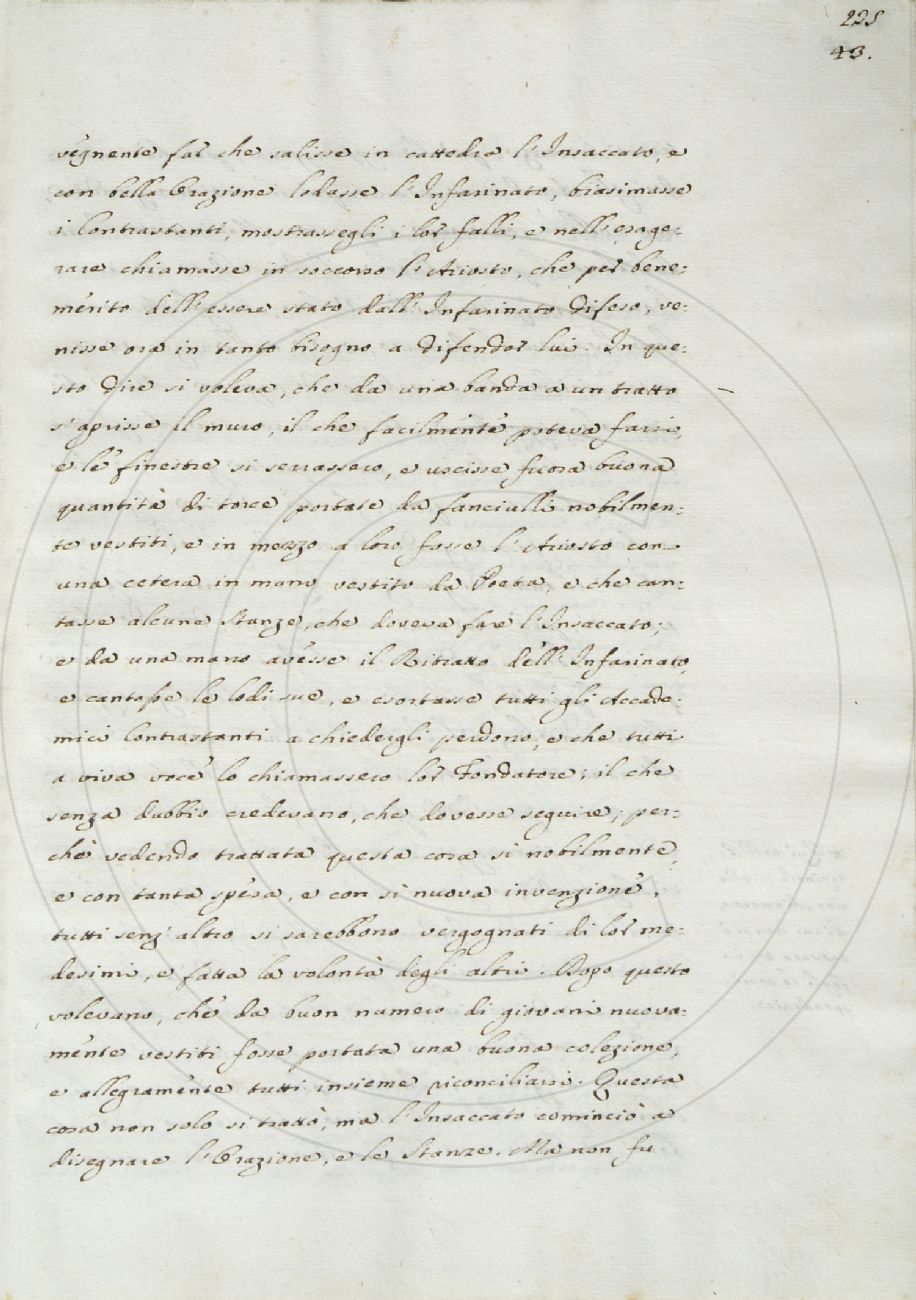 225
43.
vegnente far che salisse in cattedra l'Insaccato, e
con bella Orazione lodasse l'Infarinato, biasimasse
i Contrastanti, mostrassegli i lor falli, e nell'esage:
rare chiamasse in soccorso l'Ariosto, che per bene:
merito dell'essere stato dall'Infarinato difeso, ve:
nisse ora in tanto bisogno a difender lui. In que:
sto dire si voleva, che da una banda a un tratto
s'aprisse il muro, il che facilmente poteva farsi,
e le finestre si serrassero, e uscisse fuora buona
quantità di torce portate da fanciulli nobilmen:
te vestiti, e in mezzo a loro fosse l'Ariosto con
una cetera in mano vestito da Poeta, e che can:
tasse alcune Stanze, che doveva fare l'Insaccato;
e da una mano avesse il Ritratto dell'Infarinato,
e cantasse le lodi sue, e esortasse tutti gli Accade:
mici Contrastanti a chiedergli perdono, e che tutti
a viva voce lo chiamassero lor Fondatore; il che
senza dubbio credevano, che dovesse seguire; per:
chè vedendo trattata questa cosa sì nobilmente,
e con tanta spesa, e con sì nuova invenzione,
tutti senz'altro si sarebbono vergognati di lor me:
desimi, e fatta la volontà degli altri. Dopo questo
volevano, che da buon numero di giovani nuova:
mente vestiti fosse portata una buona colezione,
e allegramente tutti insieme riconciliarsi. Questa
cosa non solo si trattò, ma l'Insaccato cominciò a
disegnare l'Orazione, e le Stanze. Ma non fu